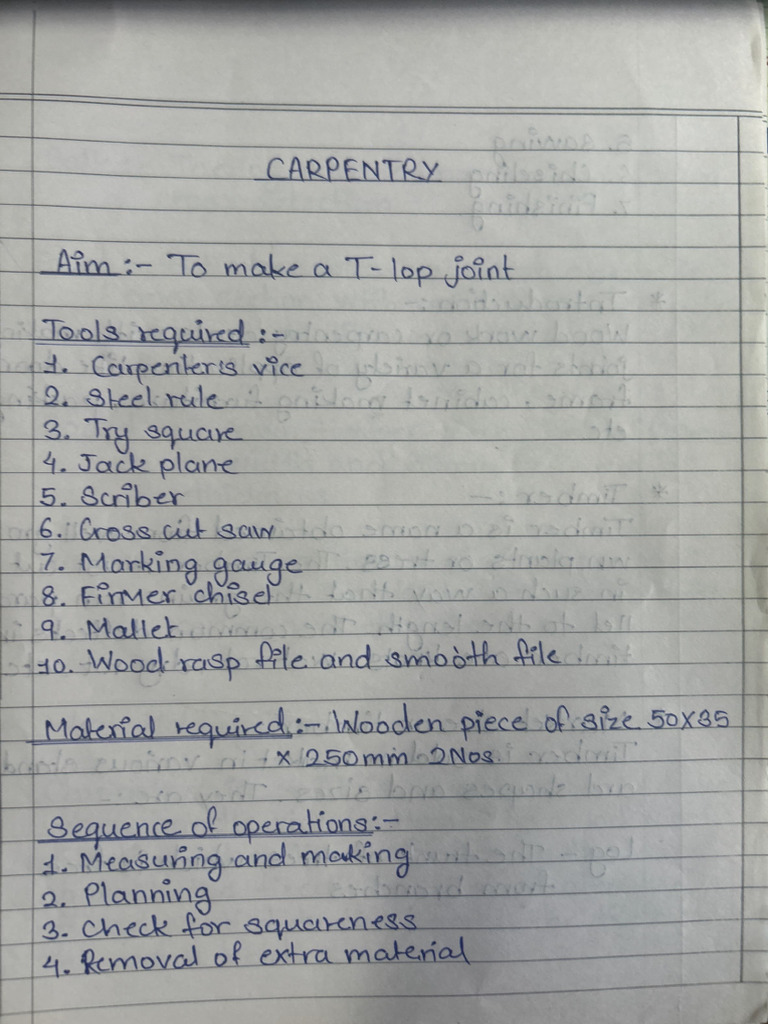 CARPENTRY
Aim :- To make a T-lop joint
Tools required :-
1. Carpenter's vice
2. Steel rule
3. Try square
4. Jack plane
5. Scriber
6. Cross cut saw
7. Marking gauge
8. Firmer chisel
9. Mallet
10. Wood rasp file and smooth file
Material required :- Wooden piece of size 50X35
X 250mm 2Nos.
Sequence of operations:-
1. Measuring and making
2. Planning
3. Check for squareness
4. Removal of extra material